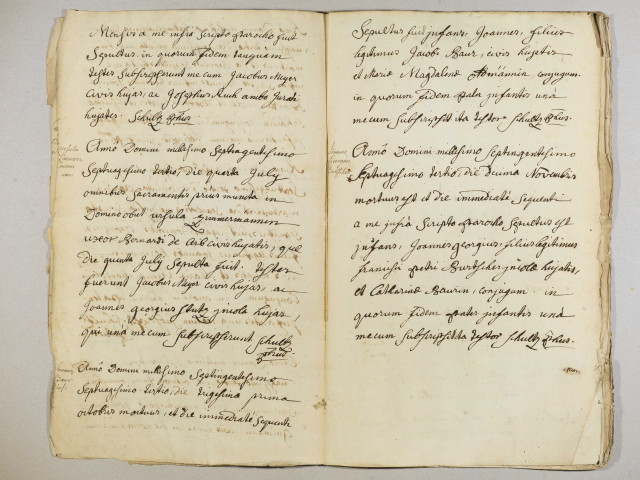 Mensis a me infra scripto Parocho fuit
Sepultus. in quorum fidem tanquam
testes Subscripserunt mecum Jacobus Meyer
civis hujas, ac Josephus Ruh ambo Jurati
hujates. Schultz
Anno Domini millesimo Septingentesimo
Septuagesimo tertio, die quarta Julij
omnibus Sacramentis prius munita in
Domino obiit Ursula Zimmermannin
uxor Bernardi de Arb civis hujatis, quae
Die quinta Julij Sepulta fuit. testes
fuerunt Jacobus Meyer civis hujas, ac
Joannes georgius Stutz incola hujas,
qui una mecum Subscripserunt Schultz
Anno Domini millesimo Septingentesimo
Septuagesimo tertio, die trigesima prima
octobris mortuus, et die immediaté Sequenti
Sepultus fuit infans, Joannes, filius
legitimus Jacobi Baur, civis hujatis
et Mariae Magdalenae conjugum.
in quorum fidem infantis una
mecum Subscripsit ita testor Schultz
Anno Domini millesimo Septingentesimo
Septuagesimo tertio, die decima Novembris
mortuus est et die immediaté Sequenti
a me infra Scripto Parocho Sepultus est
infans, Joannes georgius, filius legitimus
francisci Petri incolae hujatis,
et Catharinae Baurin, conjugum in
quorum fidem Pater infantis una
mecum Subscripsit ita testor Schultz